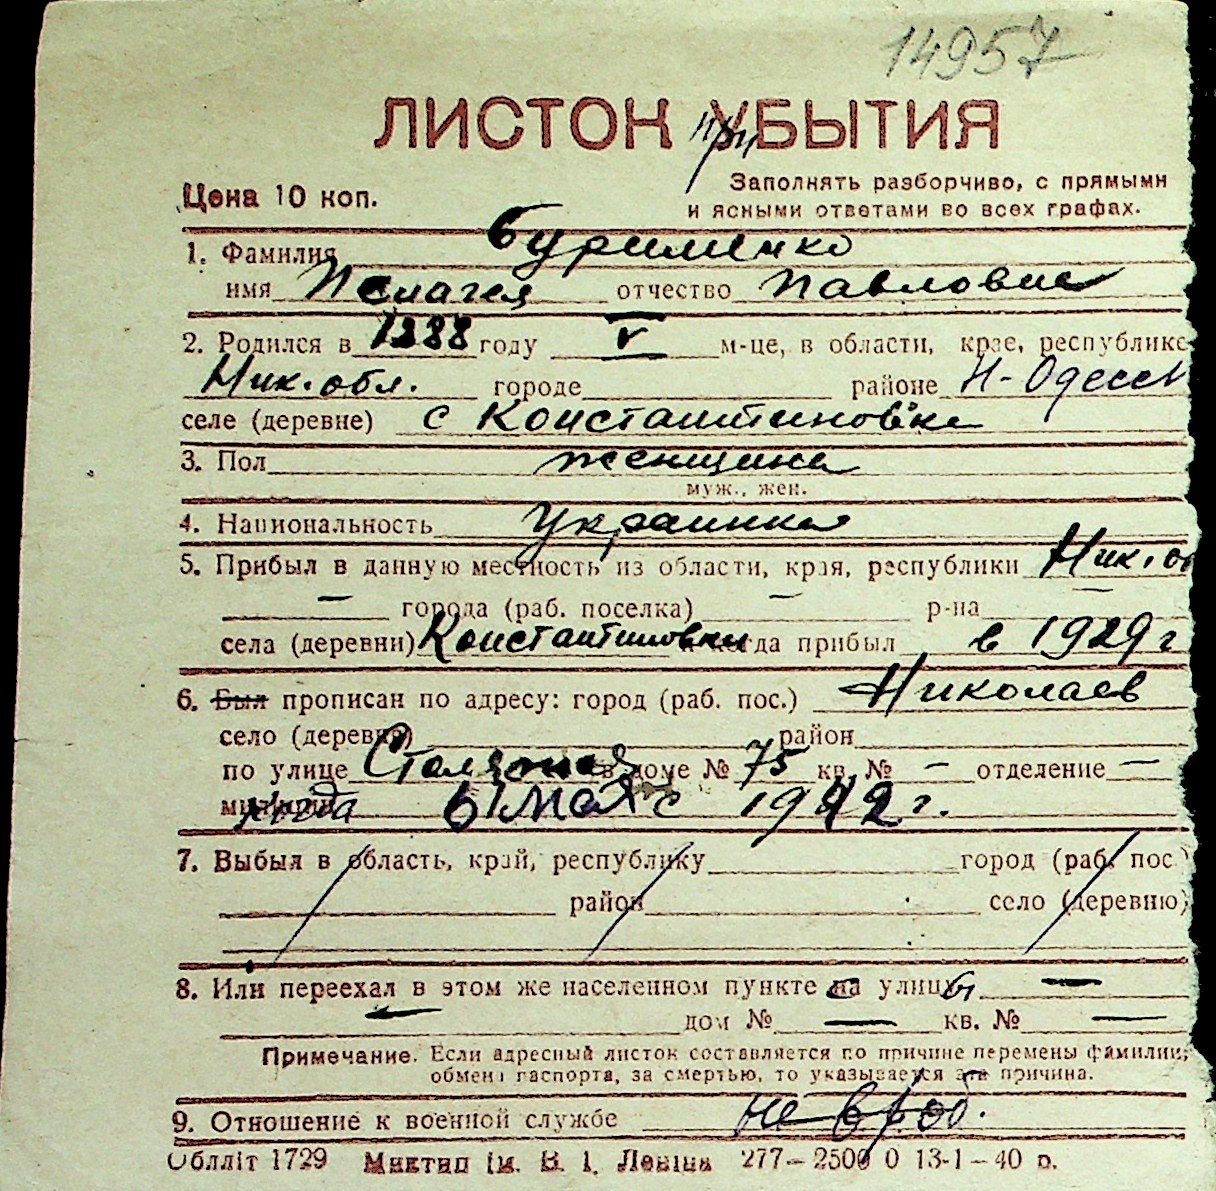 14957
ЛИСТОК при УБЫТИЯ
Цена 10 коп.
Заполнять разборчиво, с прямыми
и ясными ответами во всех графах.
1. Фамилия Бурименко
имя Пелагея отчество Павловна
2. Родился в 1888 году V м-це, в области, крае, республике
Ник. обл. городе районе Н-Одесск
селе (деревне) с Константиновке
3. Пол женщина
муж., жен.
4. Национальность Украинка
5. Прибыл в данную местность из области, края, республики Ник. об
– города (раб. поселка) – р-на –
села (деревни) Константиновки когда прибыл в 1929 г
6. Был прописан по адресу: город (раб. пос.) Николаев
село (деревня) район
по улице в доме № 75 кв. № – отделение –
милиции когда 6/мая с 1942 г.
7. Выбыл в область, край, республику город (раб. пос.)
район село (деревню)
8. Или переехал в этом же населенном пункте с улицы —
дом № — кв. № —
Примечание. Если адресный листок составляется по причине перемены фамилии,
обмена паспорта, за смертью, то указывается эта причина.
9. Отношение к военной службе не в/об.
Облліт 1729 Миктип ім. В. І. Леніна 277–2500 0 13-1–40 р.